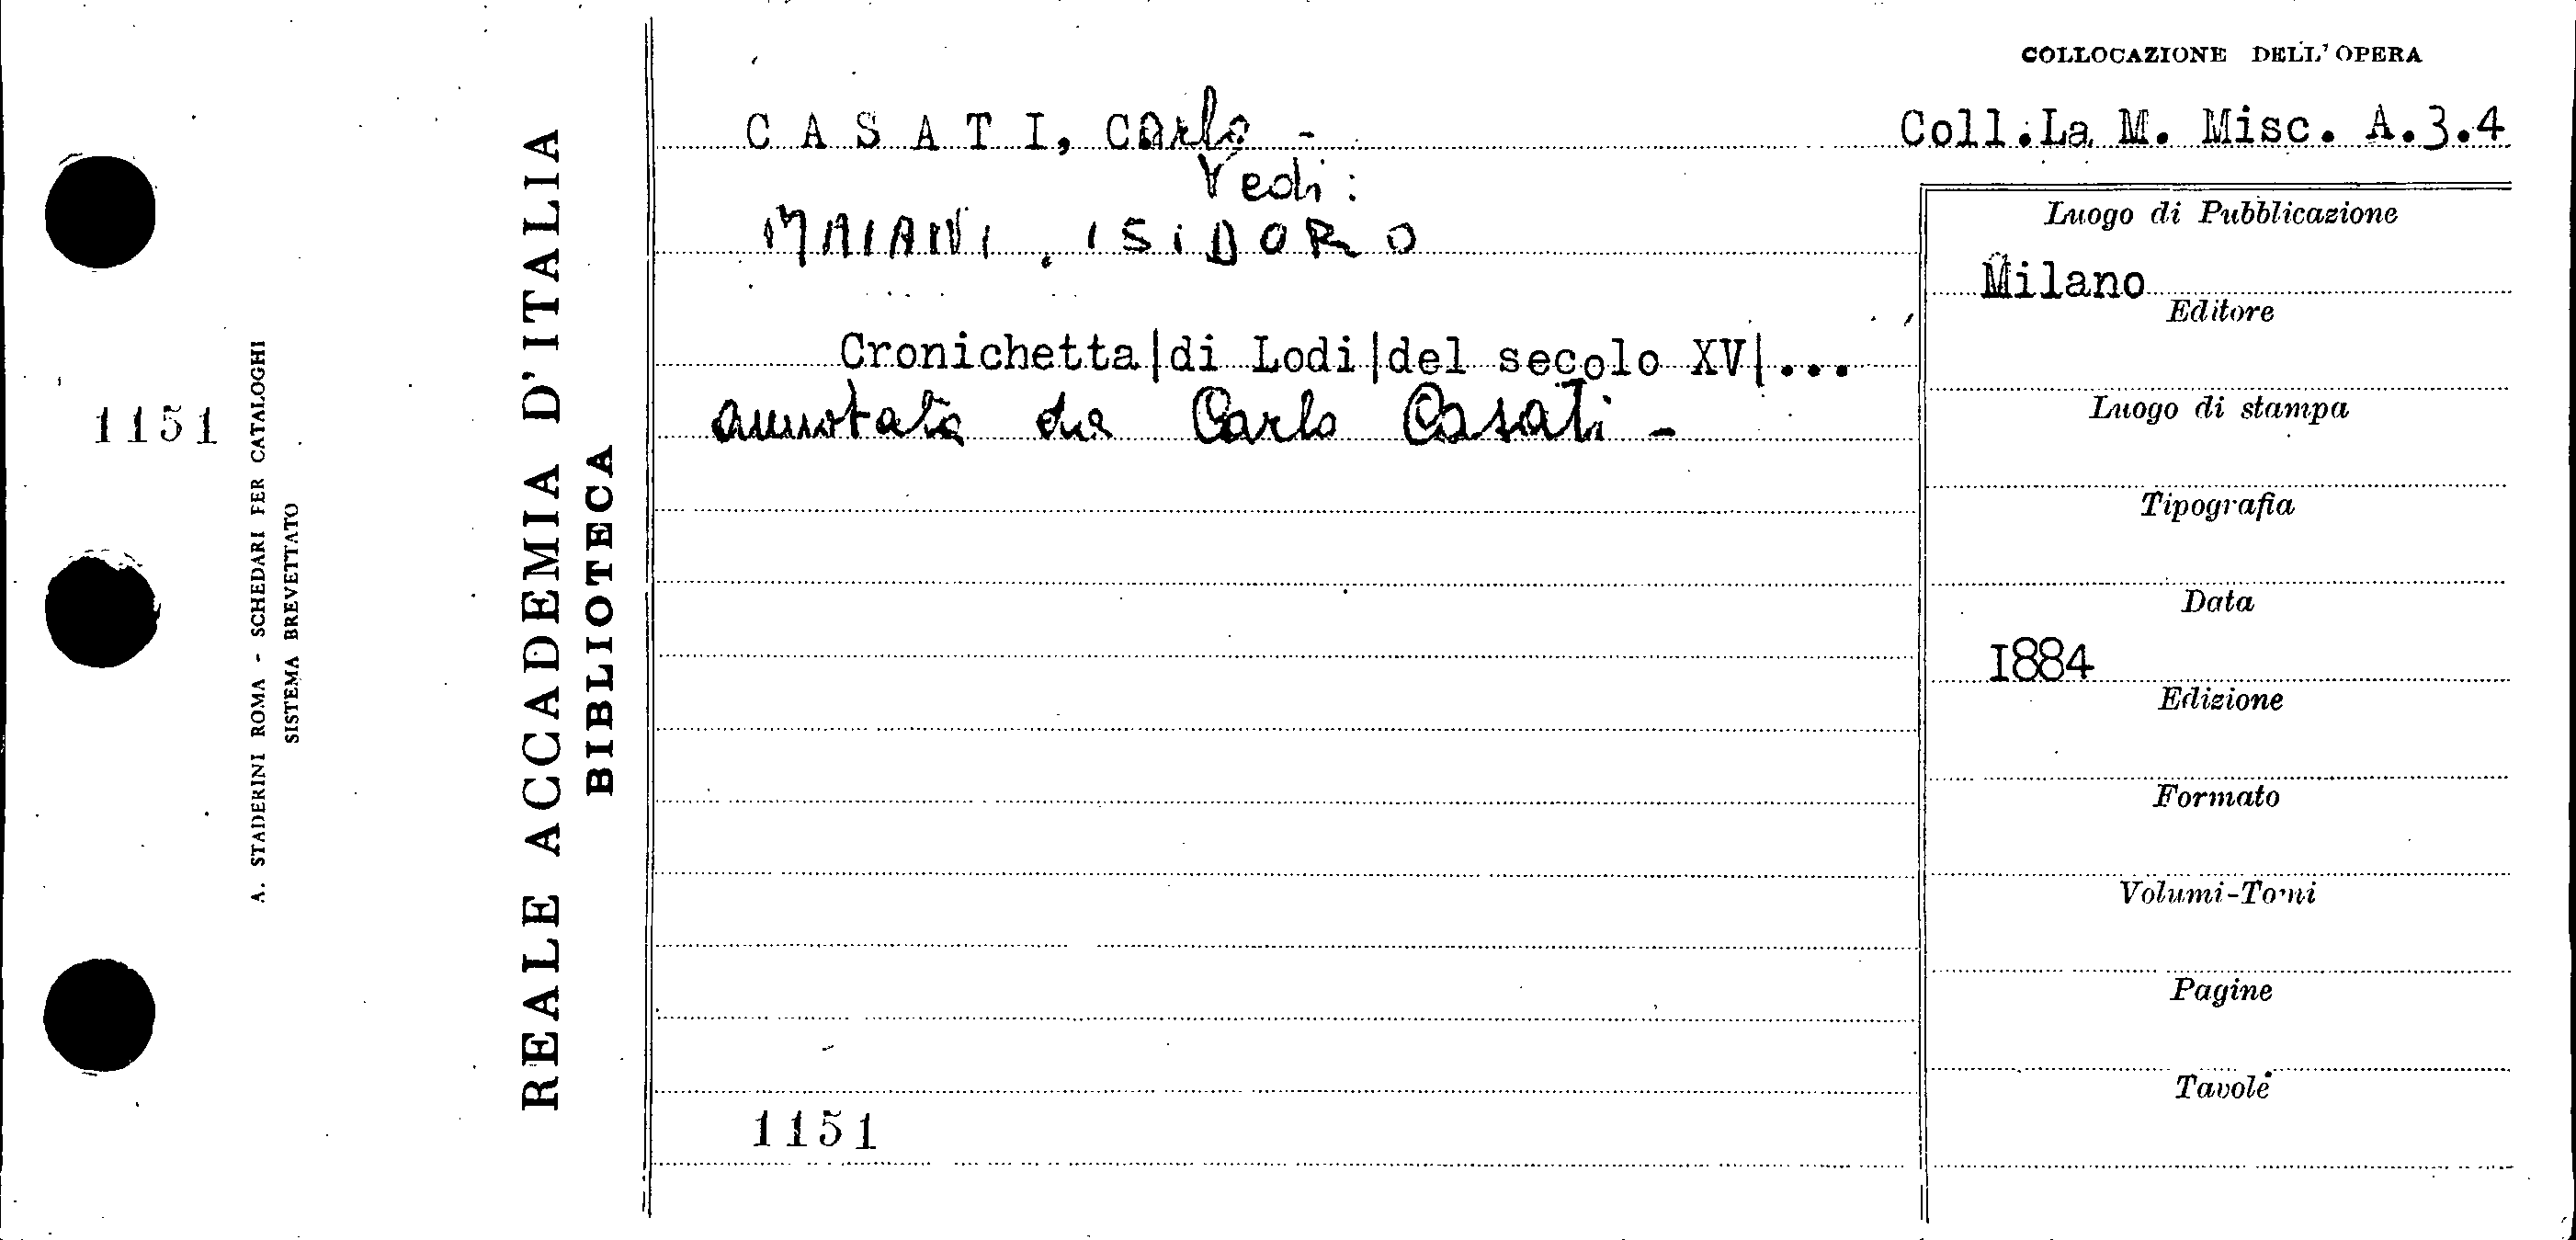 COLLOCAZIONE DELL'OPERA
CASATI, Carlo -
Coll.La M. Misc. A.3.4
Vedi:
MAIANI, ISIDORO
Cronichetta|di Lodi|del secolo XV|...
annotata da Carlo Casati -
1151
Luogo di Pubblicazione
Milano
Editore
Luogo di stampa
Tipografia
Data
I884
Edizione
Formato
Volumi-Tomi
Pagine
Tavole
1151
REALE ACCADEMIA D'ITALIA
BIBLIOTECA
A. STADERINI ROMA - SCHEDARI PER CATALOGHI
SISTEMA BREVETTATO